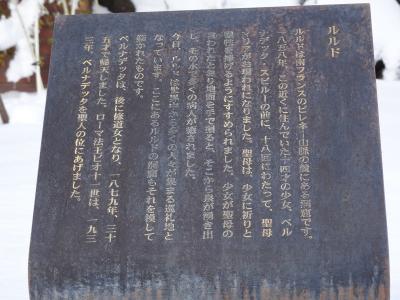 ルルド
ルルドは南フランスのピレネー山脈の麓にある洞窟です。
一八五八年、この近くに住んでいた十四才の少女、ベル
ナデッタ・スビルーの前に、十八回にわたって、聖母
マリアがお現われになりました。聖母は、少女に祈りと
犠牲を捧げるようにすすめられました。少女が聖母の
言われたとおり地面を手で掘ると、そこから泉が湧き出
し、その水で多くの病人が癒されました。
今日、ルルドは世界中から多くの人々が集まる巡礼地と
なっています。ここにあるルルドの洞窟もそれを模して
築かれたものです。
ベルナデッタは、後に修道女となり、一八七九年、三十
五才で帰天しました。ローマ法王ピオ十一世は、一九三
三年、ベルナデッタを聖人の位にあげました。